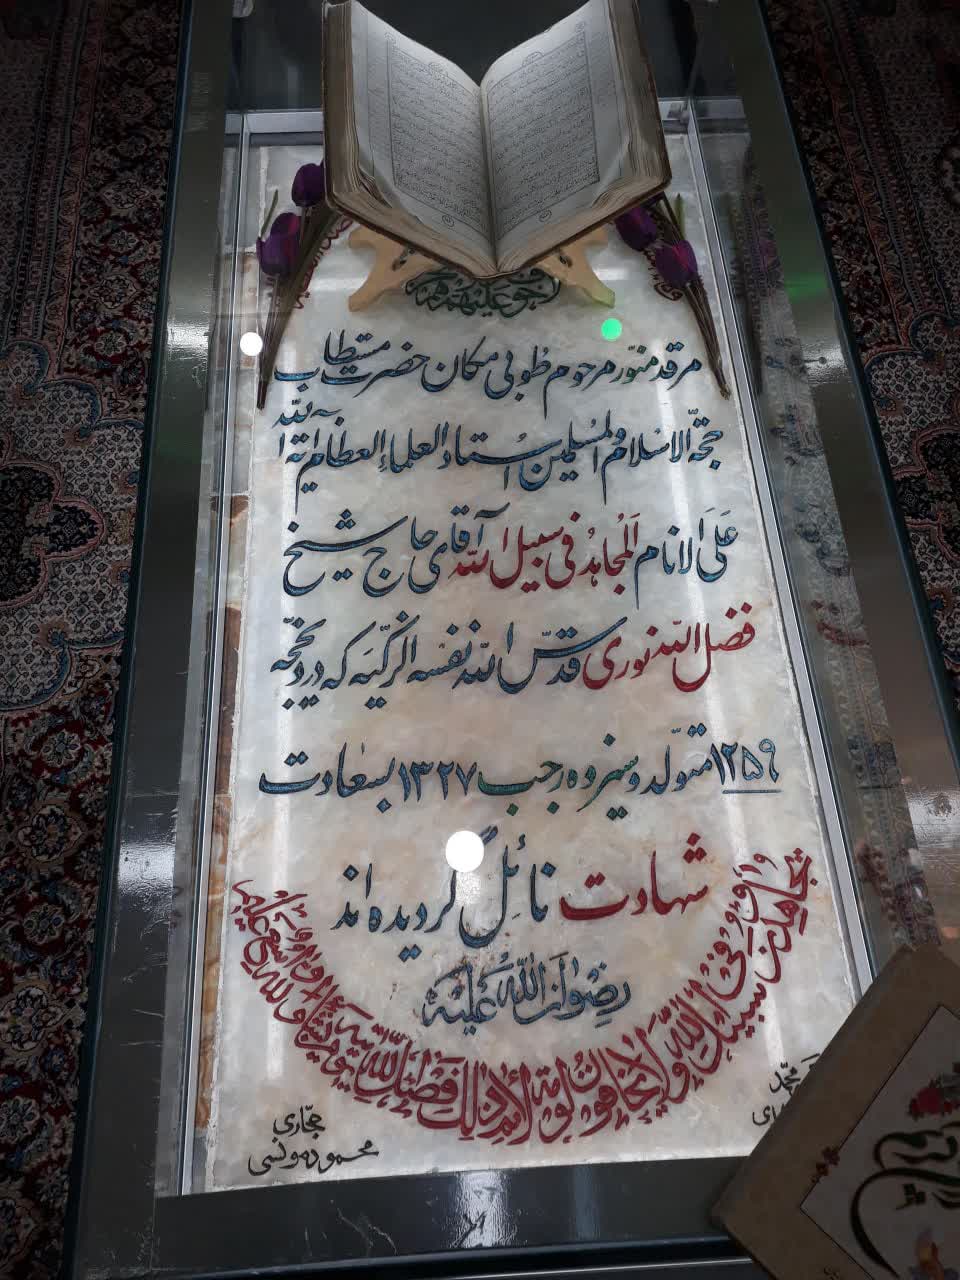 هو
مرقد منوّر مرحوم طوبی مکان حضرت مستطاب
حجّة الاسلام والمسلمین استاد العلماء العظام آیة الله
عَلَی الانام المجاهد فی سبیل الله آقای حاج شیخ
فضل الله نوری قدّس الله نفسه الزکیّه که در ذیحجّه
۱۲۵۹ متولّد و سیزده رجب ۱۳۲۷ بسعادت
شهادت نائل گردیده‌اند
رضوان الله علیه
یجاهدون فی سبیل الله ولا یخافون لومة لائم ذلک فضل الله یؤتیه من یشاء والله واسع علیم
حجّاری
محمود مونسی
محمّد